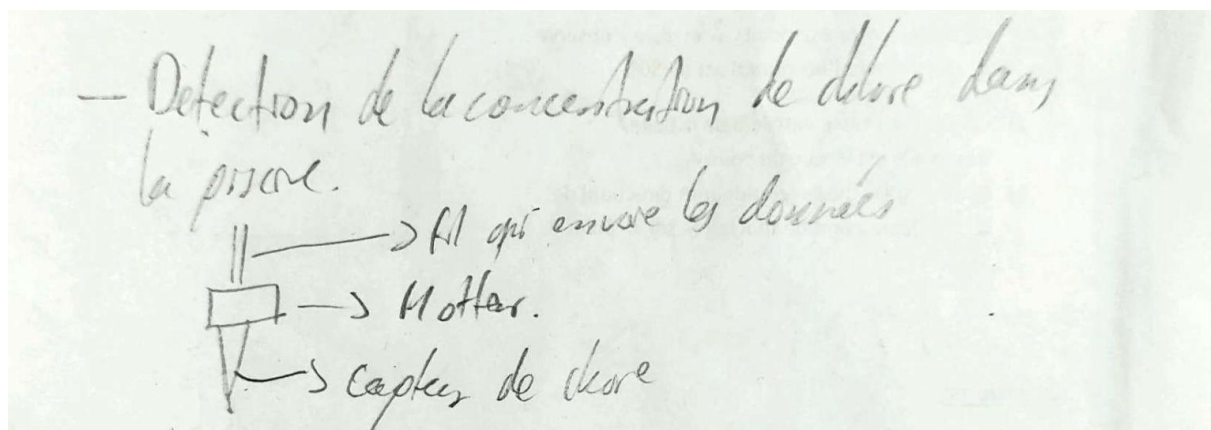 — Detection de la concentration de chlore dans
la piscine.
→ fil qui envoie les données
→ Flotteur.
→ capteur de chlore